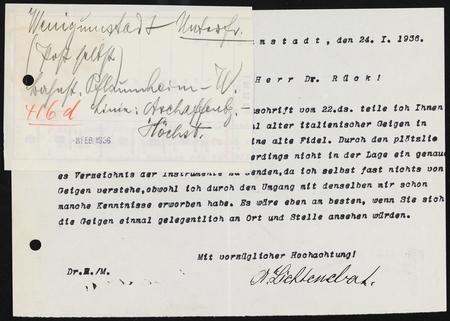 Wenigumstadt Unterfr.
(Post selbst
Bahnst. Pflaumheim-W.
Linie: Aschaffenbg.-
Höchst.
416d
-8 FEB 1936
mstadt, den 24. I. 1936.
Herr Dr. Rück!
schrift vom 22.ds. teile ich Ihnen
l alter italienischer Geigen in
ine alte Fidel. Durch den plötzlic
erdings nicht in der Lage ein genau
es Verzeichnis der Instrumente zu senden,da ich selbst fast nichts von
Geigen verstehe,obwohl ich durch den Umgang mit denselben mir schon
manche Kenntnisse erworben habe. Es wäre eben am besten, wenn Sie sich
die Geigen einmal gelegentlich an Ort und Stelle ansehen würden.
Mit vorzüglicher Hochachtung!
Dr.H./M.